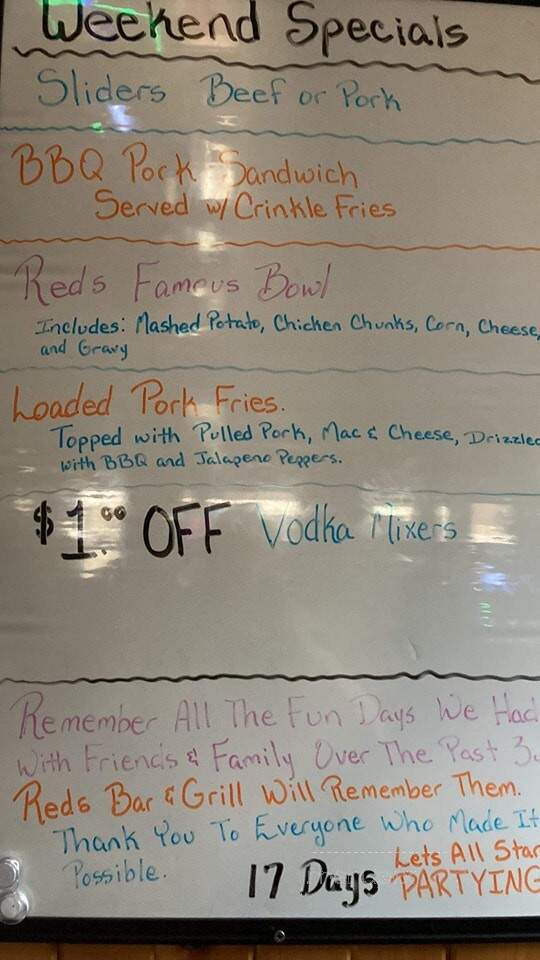 Weekend Specials
Sliders Beef or Pork
BBQ Pork Sandwich
Served w/ Crinkle Fries
Reds Famous Bowl
Includes: Mashed Potato, Chicken Chunks, Corn, Cheese,
and Gravy
Loaded Pork Fries.
Topped with Pulled Pork, Mac & Cheese, Drizzled
with BBQ and Jalapeno Peppers.
$1.00 OFF Vodka Mixers
Remember All The Fun Days We Had
With Friends & Family Over The Past 3
Reds Bar & Grill Will Remember Them.
Thank You To Everyone Who Made It
Possible.
17 Days
Lets All Star
PARTYING